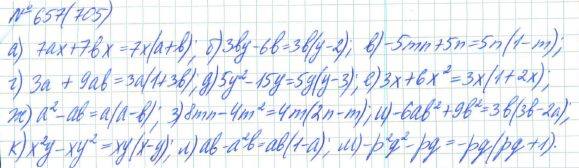 № 657(705)
а) 7ax+7bx=7x(a+b); б) 3by-6b=3b(y-2); в) -5mn+5n=5n(1-m);
г) 3a+9ab=3a(1+3b); д) 5y²-15y=5y(y-3); е) 3x+6x²=3x(1+2x);
ж) a²-ab=a(a-b); з) 8mn-4m²=4m(2n-m); и) -6ab²+9b²=3b(3b-2a);
к) x²y-xy²=xy(x-y); л) ab-a²b=ab(1-a); м) -p²q²-pq=-pq(pq+1).